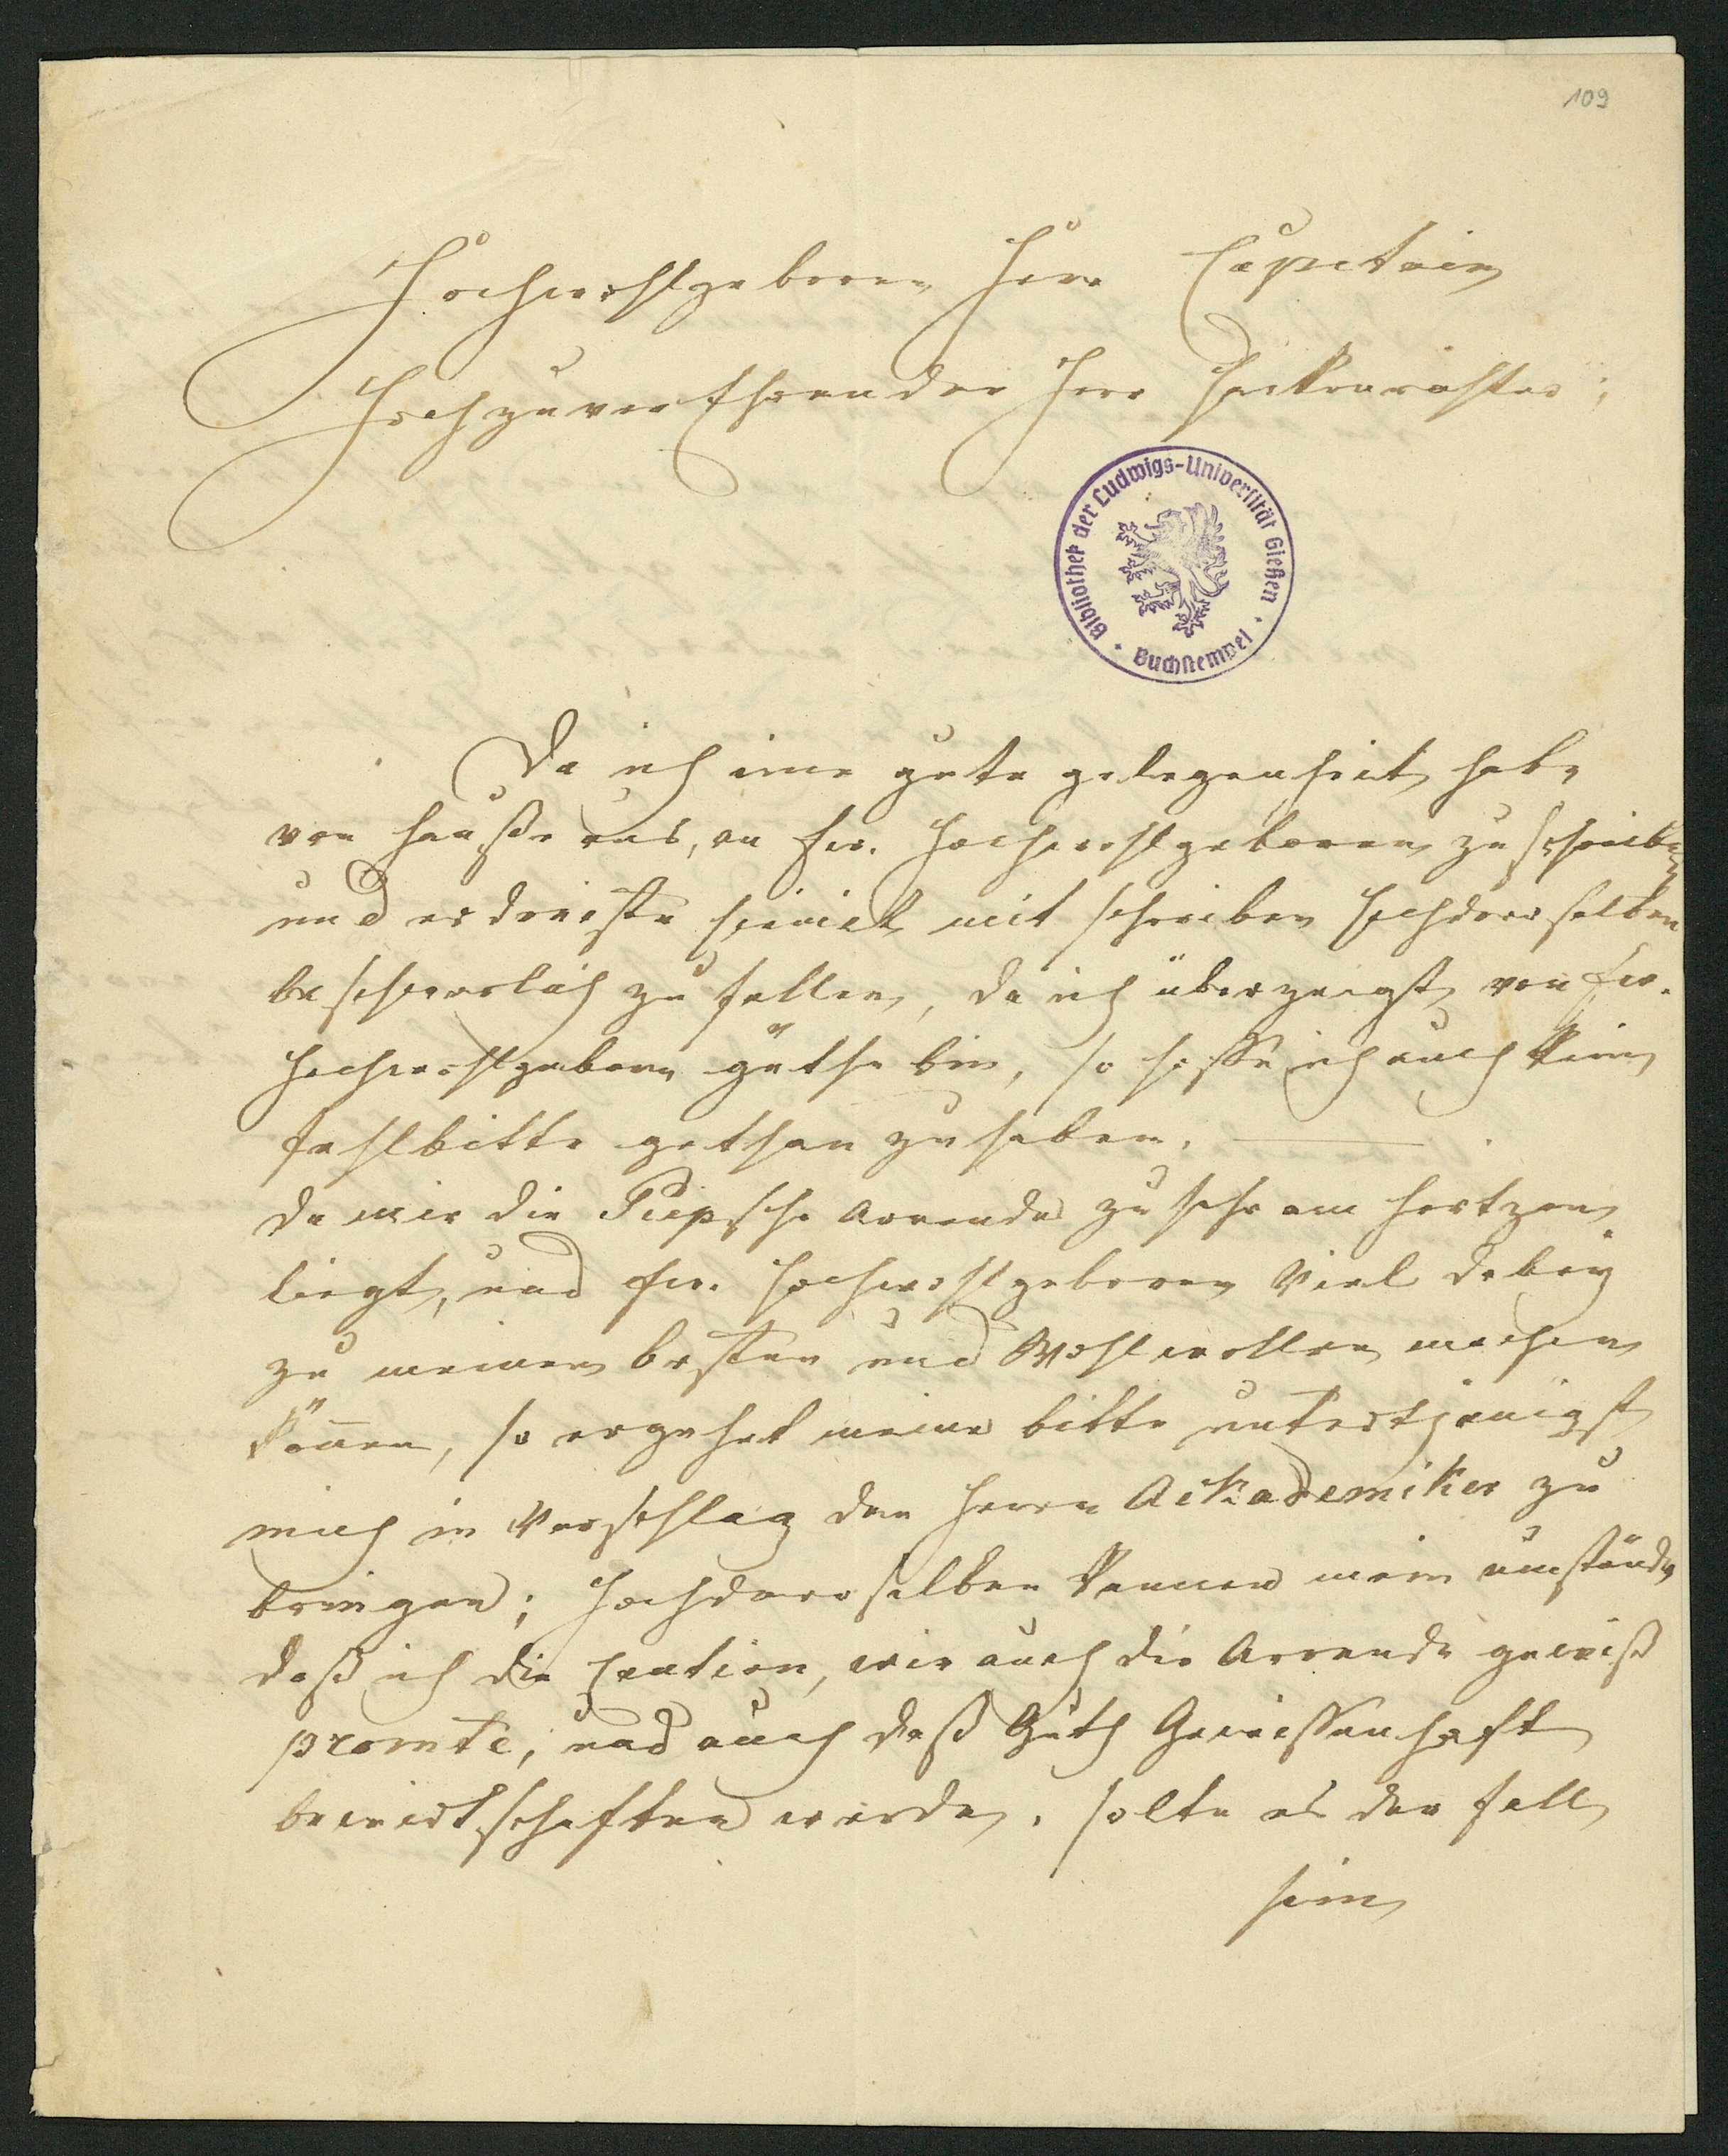 109
Hochwohlgeborner Herr Capitain
Hochzuverehrender Herr Hackenrichter;
Bibliothek der Ludwigs-Universität Gießen
Buchstempel
Da ich eine gute gelegenheit habe
von hauße aus, an Ew. Hochwohlgeboren zu schreiben
und erdreiste hiemit mit schreiben Hochderoselben
beschwerlich zu fallen, da ich überzeigt von Ew.
Hochwohlgeborn güthe bin, so hoffe ich auch kein
fehlbitte gethan zu haben.
da mir die Piepsche Arrende zu sehr am Hertzen
liegt, und Ew. Hochwohlgeboren Viel dabey
zu meinen besten und Wohlwollen machen
könen, so ergehet meine bitte untertjänigst
mich in Vorschlag den Herrn Ackademiker zu
bringen; Hochderoselben kennen mein umstände
daß ich die Caution, wie auch die Arrende gewiß
promte, und auch daß Guth Gewissenhaft
bewirtschaften werde. solte es der fall
sein